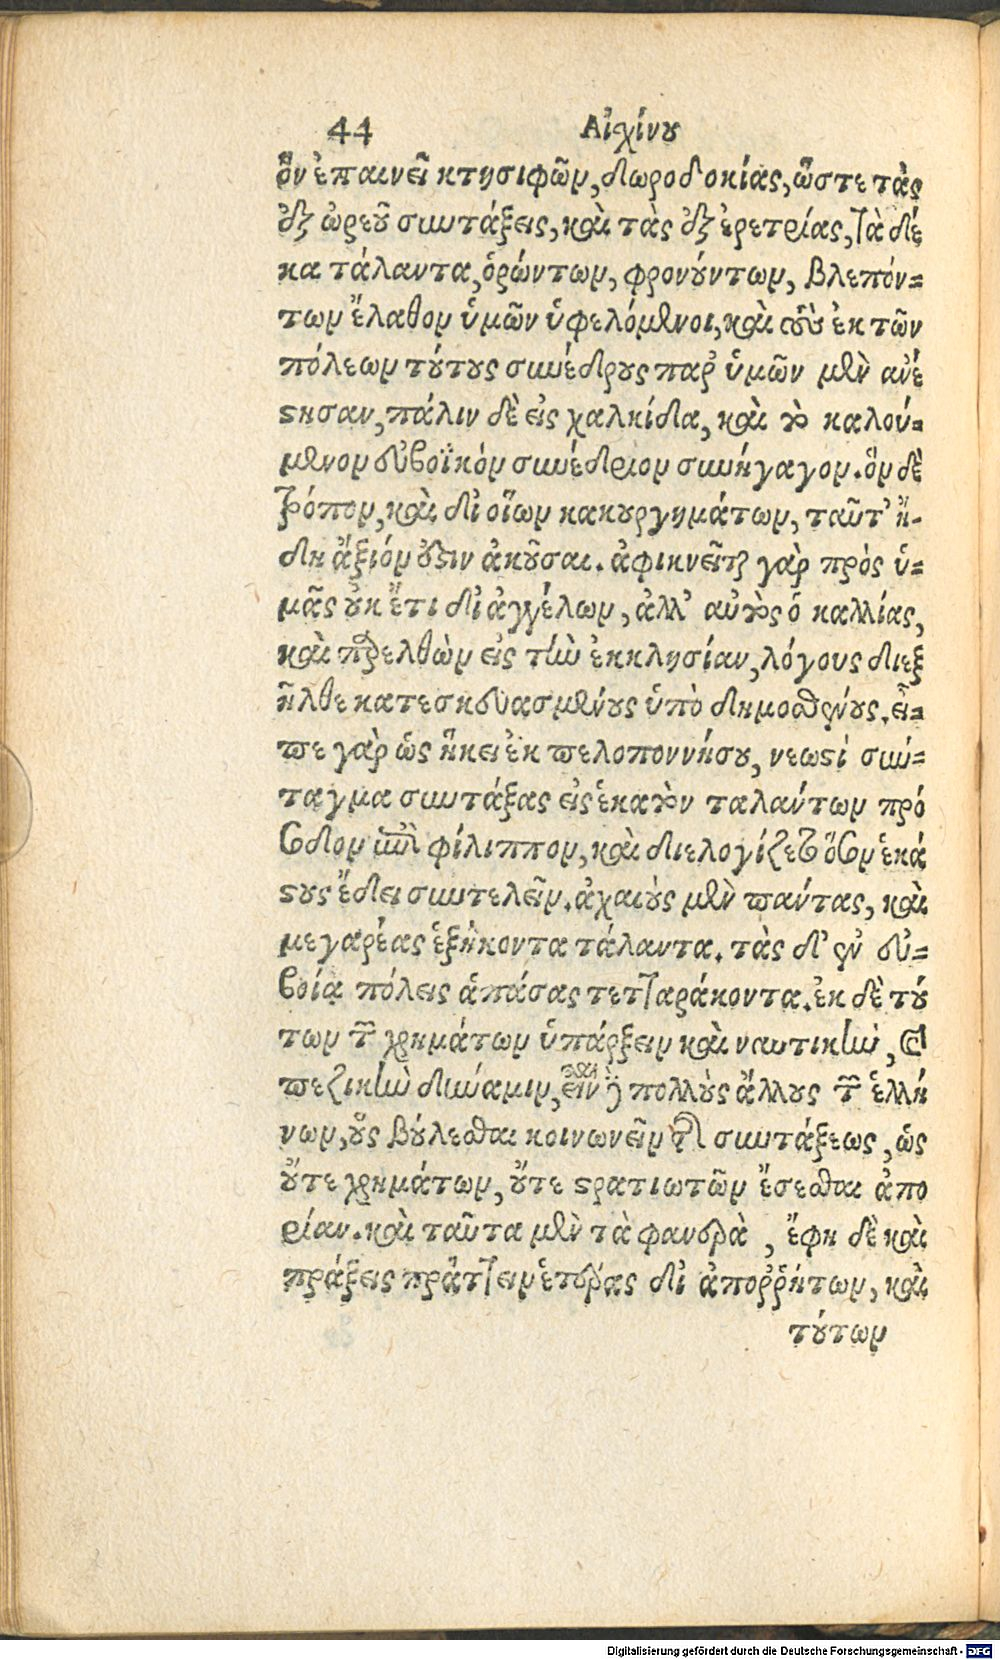 44 Αἰχίνου
ὃν ἐπαινεῖ κτησιφῶν, δωροδοκίας, ὥστε τὰς
ἐξ ὠρεοῦ συντάξεις, καὶ τὰς ἐξ ἐρετρίας, τὰ δέ
κα τάλαντα, ὁρώντων, φρονούντων, βλεπόν=
των ἔλαθον ὑμῶν ὑφελόμενοι, καὶ τοὺς ἐκ τῶν
πόλεων τούτους συνέδρους παρ' ὑμῶν μὲν ἀνέ
στησαν, πάλιν δὲ εἰς χαλκίδα, καὶ τὸ καλού=
μενον εὐβοϊκὸν συνέδριον συνήγαγον. ὃν δὲ
τρόπον, καὶ δι' οἵων κακουργημάτων, ταῦτ' ἤ-
δη ἄξιόν ἐστιν ἀκοῦσαι. ἀφικνεῖται γὰρ πρὸς ὑ=
μᾶς οὐκ ἔτι δι' ἀγγέλων, ἀλλ' αὐτὸς ὁ καλλίας,
καὶ παρελθὼν εἰς τὴν ἐκκλησίαν, λόγους διεξ
ῆλθε κατεσκευασμένους ὑπὸ δημοσθένους. εἶ=
πε γὰρ ὡς ἥκει ἐκ πελοποννήσου, νεωστὶ σύν-
ταγμα συντάξας εἰς ἑκατὸν ταλάντων πρό
σοδον ἐπὶ φίλιππον, καὶ διελογίζετο ὅσον ἑκά
στους ἔδει συντελεῖν. ἀχαιοὺς μὲν πάντας, καὶ
μεγαρέας ἑξήκοντα τάλαντα. τὰς δ' ἐν εὐ=
βοίᾳ πόλεις ἁπάσας τετταράκοντα. ἐκ δὲ τού
των τῶν χρημάτων ὑπάρξειν καὶ ναυτικὴν, καὶ
πεζικὴν δύναμιν, εἶναι δὲ πολλοὺς ἄλλους τῶν ἑλλή
νων, οὓς βούλεσθαι κοινωνεῖν τῆς συντάξεως, ὡς
οὔτε χρημάτων, οὔτε στρατιωτῶν ἔσεσθαι ἀπο
ρίαν. καὶ ταῦτα μὲν τὰ φανερὰ, ἔφη δὲ καὶ
πράξεις πράττειν ἑτέρας δι' ἀποῤῥήτων, καὶ
τούτων
Digitalisierung gefördert durch die Deutsche Forschungsgemeinschaft - DFG